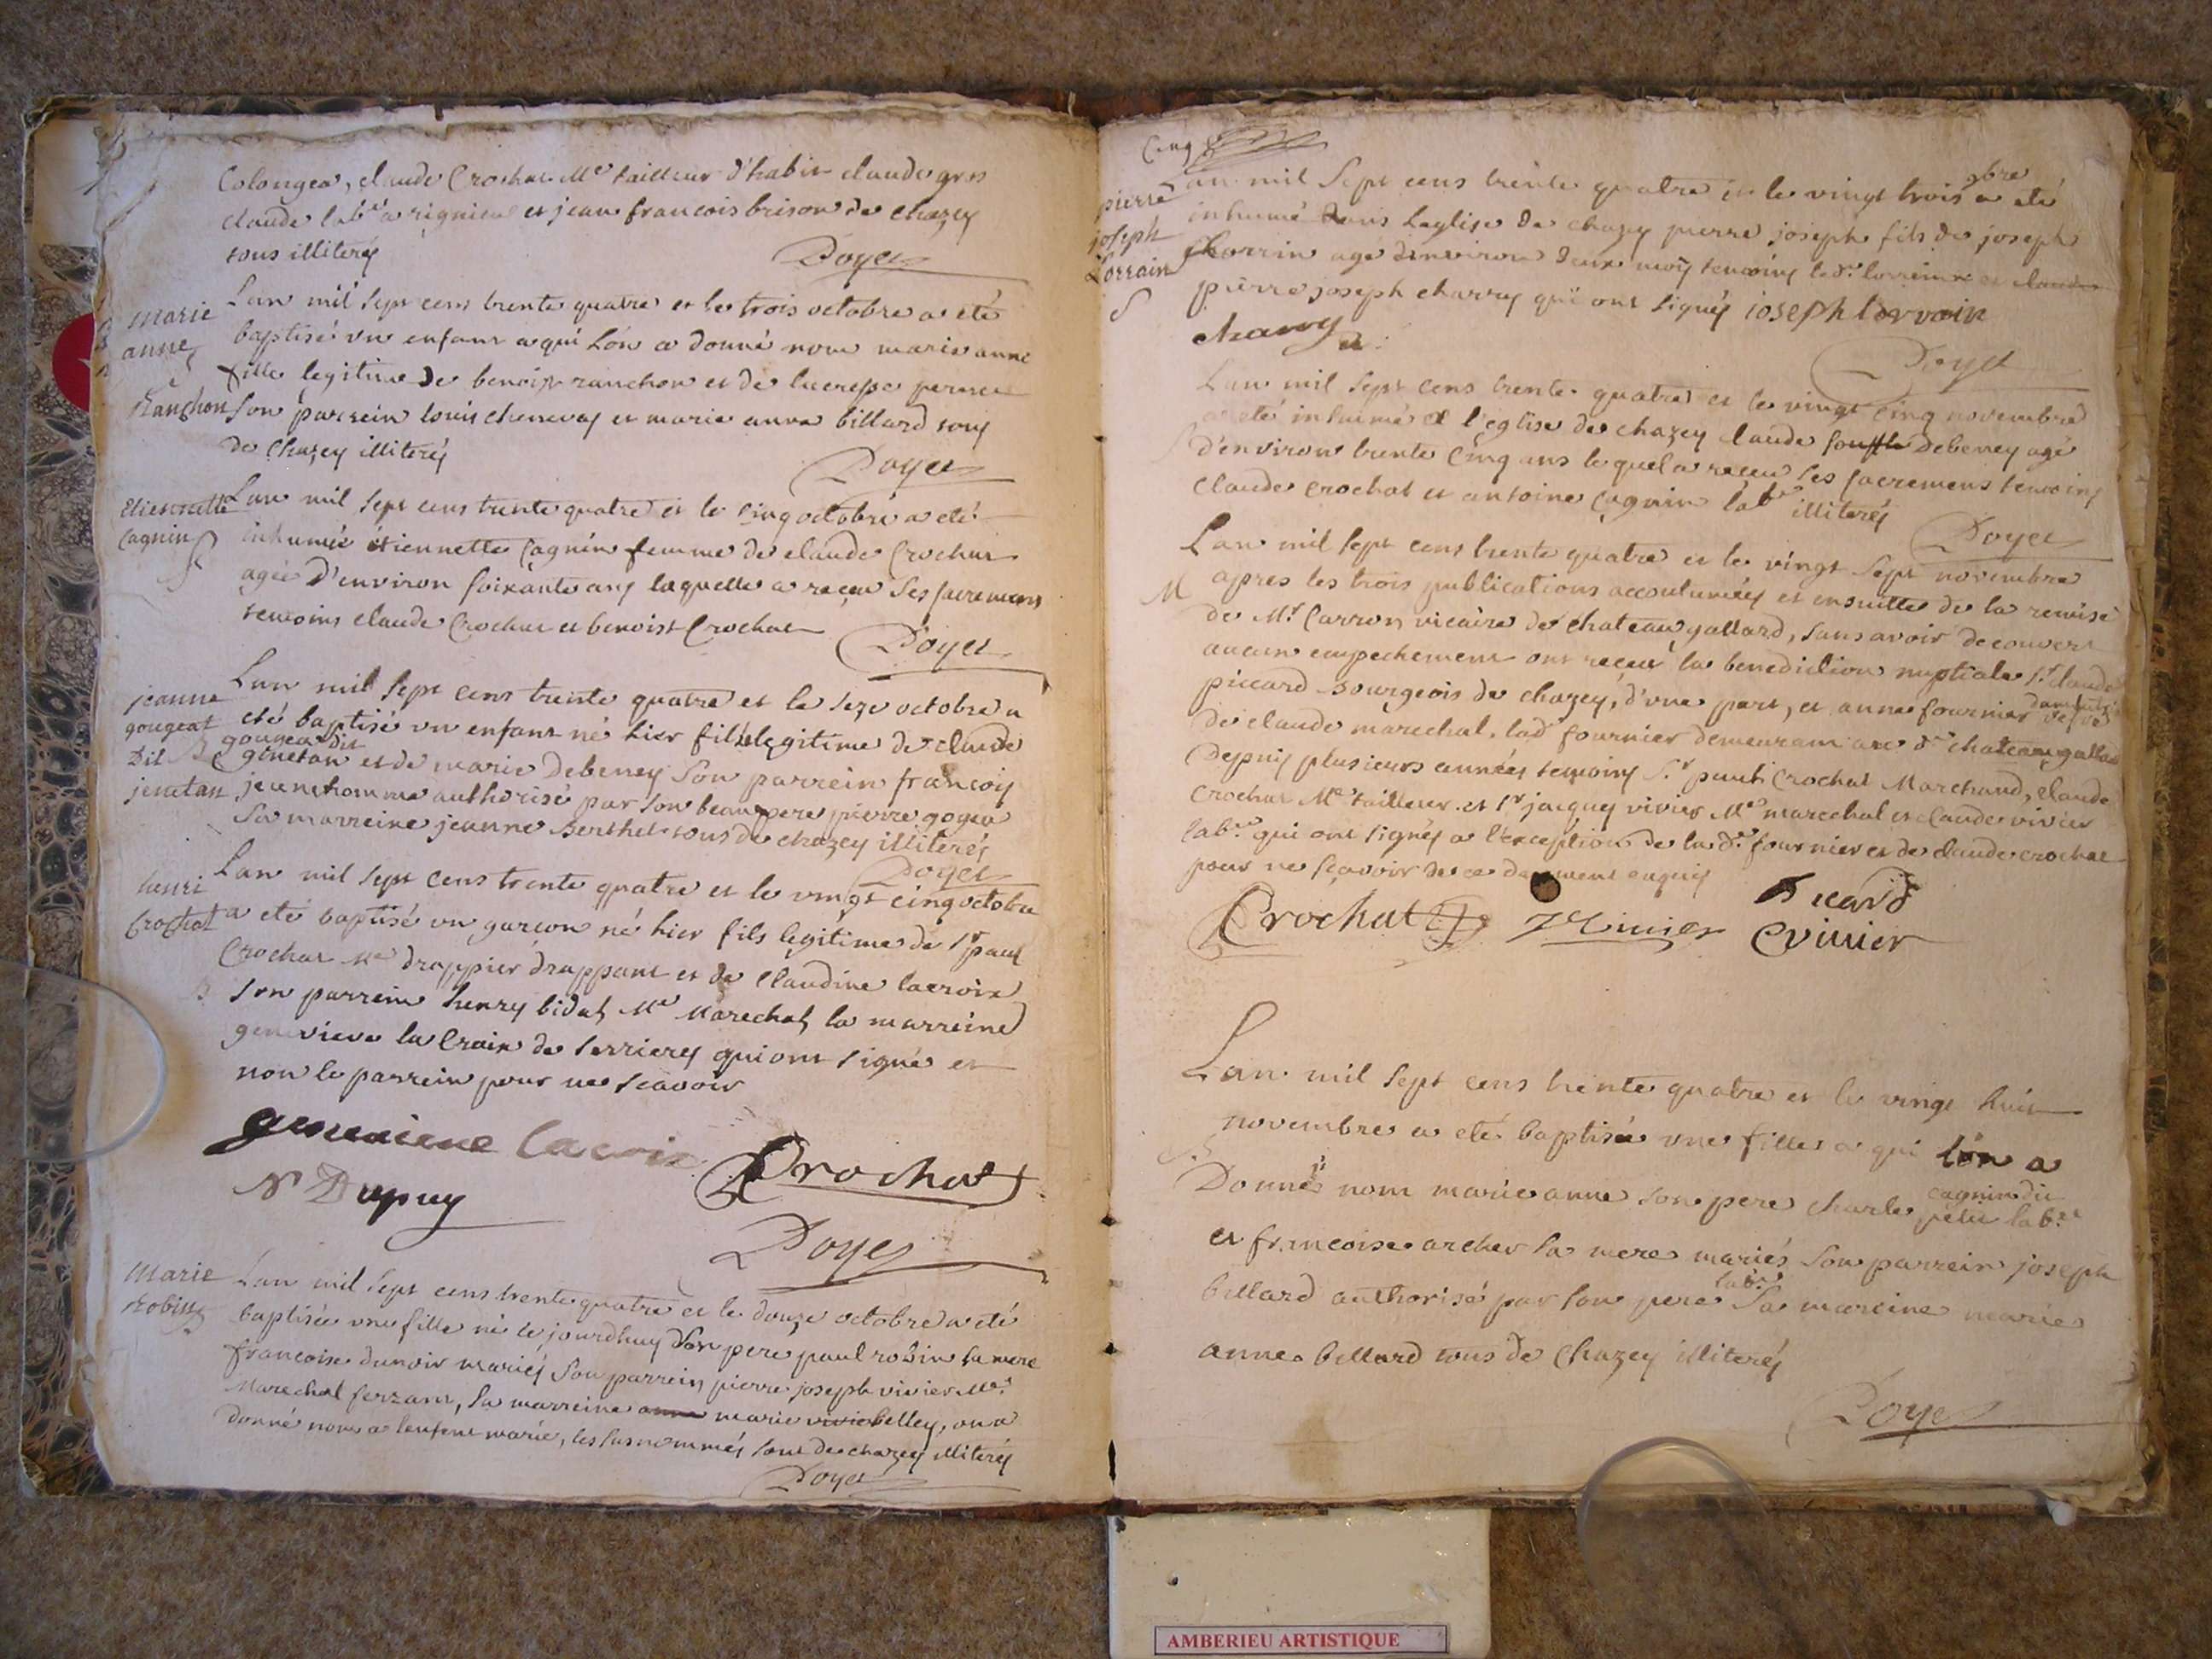 Colongea, claude Crochat Me tailleur d'habit claude gros
claude labr a rignieu et jean francois brison de chazey
tous illiterés
Doyet
marie
anne
Ranchon
Lan mil sept cens trente quatre et le trois octobre a eté
baptisé vn enfant a qui lón a donné nom marie anne
fille legitime de benoist ranchon et de lucresse
Son parrein louis chenevay et marie anne billard touts
de Chazey illiterés
Doyet
Etiennette
Cagnin
S
Lan mil sept cens trente quatre et le cinq octobre a eté
inhumée étiennette Cagnin femme de claude Crochat
agée d'environ soixante ans laquelle a reçeu ses sacremens
temoins claude Crochat et benoist Crochat
Doyet
jeanne
gougeat
Dit
jenetan
B
Lan mil sept cens trente quatre et le seze octobre a
eté baptisé vn enfant né hier fille legitime de claude
gougea dit
genetan et de marie debeney son parrein françois
jeunehomme authorisé par son beaupere pierre gogea
Sa marreine jeanne Berthet tous de chazey illiterés
Doyet
henri
Crochat
B
Lan mil sept cens trente quatre et le vingt cinq octobre
a eté baptisé vn garcon né hier fils legitime de Sr paul
Crochat Me drappier drappant et de Claudine lacroix
son parrein henry bidat Me Marechal, la marreine
genevieve la Croix de Serrieres qui ont signé et
non le parrein pour ne scavoir
genevieve lacroix
Crochat
N Dupuy
Doyet
Marie
Robin
Lan mil sept cens trente quatre et le douze octobre a eté
baptisée vne fille né ce jourdhuy son pere paul robin sa mere
francoise dunoir mariés son parrein pierre joseph vivier Me
Marechal ferrant, Sa marreine anne marie vivie belley, on a
donné nom a lenfant marie, les susnommés sont de chazey illiterés
Doyet
Cinq
pierre
joseph
Lorrain
S
Lan mil sept cens trente quatre et le vingt trois 9bre a eté
inhumé dans leglise de chazey pierre joseph fils de joseph
Lorrin agé denviron deux mois temoins led. lorrein et claude
pierre joseph charvy qui ont signés ioseph lorrain
charvy
Doyet
S
Lan mil sept cens trente quatre et le vingt cinq novembre
a eté inhumé a l'eglise de chazey claude Debeney agé
d'environ trente cinq ans lequel a receu ses sacremens temoins
claude crochat et antoine cagnin labr illiterés
Doyet
M
Lan mil sept cens trente quatre et le vingt sept novembre
apres les trois publications accoutumées et ensuitte de la remise
de Mr Carron vicaire de chateau gallard, sans avoir decouvert
aucun empechement ont reçeu la benediction nuptiale Sr claude
piccard Bourgeois de chazey, d'vne part, et anne fournier vefve
de claude marechal. lad fournier demeurant au d. chateaugallard
Depuis plusieurs années temoins Sr paul Crochat Marchand, claude
Crochat Me tailleur et Sr jacques vivier Me marechal et claude vivier
labr. qui ont signés a lexception de lad. fournier et de claude crochat
pour ne sçavoir de ce duement enquis
Crochat
Picard
C vivier
Lan mil sept cens trente quatre et le vingt huit
novembre a eté baptisée vne fille a qui lón a
Donné nom marie anne son pere charle
cagnin dit
petit labr.
et francoise archer sa mere mariés son parrein joseph
billard authorisé par son pere labr. sa marreine marie
anne billard tous de Chazey illiterés
Doyet
AMBERIEU ARTISTIQUE